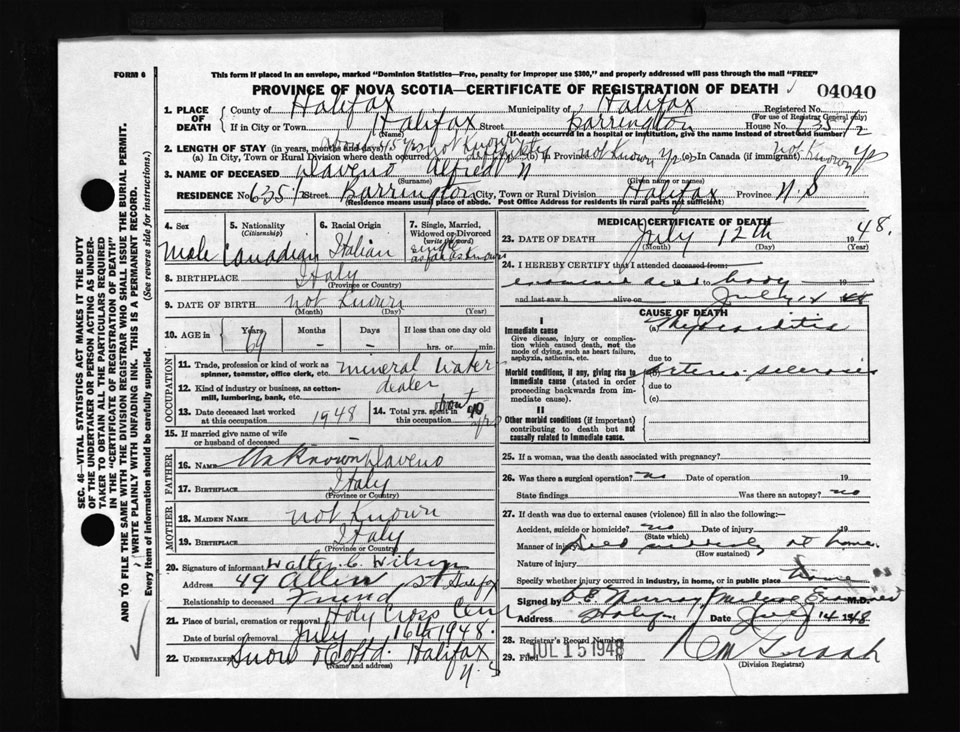 FORM 6
This form if placed in an envelope, marked "Dominion Statistics—Free, penalty for improper use $300," and properly addressed will pass through the mail "FREE"
PROVINCE OF NOVA SCOTIA—CERTIFICATE OF REGISTRATION OF DEATH 04040
1. PLACE OF DEATH County of Halifax Municipality of Halifax Registered No.
(For use of Registrar General only)
If in City or Town Halifax Street Barrington House No. 635 1/2
(Name) (If death occurred in a hospital or institution, give the name instead of street and number)
2. LENGTH OF STAY (in years, months and days)
(a) In City, Town or Rural Division where death occurred not known definitely (b) In Province not known yrs (c) In Canada (if immigrant) not known yrs
3. NAME OF DECEASED Llaveno Alfred N
(Surname) (Given name or names)
RESIDENCE No 635 1/2 Street Barrington City, Town or Rural Division Halifax Province N.S
(Residence means usual place of abode. Post Office Address for residents in rural parts not sufficient)
4. Sex Male
5. Nationality (Citizenship) Canadian
6. Racial Origin Italian
7. Single, Married, Widowed or Divorced (write the word) single as far as known
8. BIRTHPLACE Italy
(Province or Country)
9. DATE OF BIRTH not known
(Month) (Day) (Year)
10. AGE in Years 69 Months - Days - If less than one day old
hrs. or min.
OCCUPATION
11. Trade, profession or kind of work as spinner, teamster, office clerk, etc. mineral water
12. Kind of industry or business, as cotton-mill, lumbering, bank, etc. dealer
13. Date deceased last worked at this occupation 1948
14. Total yrs. spent in this occupation about 40 yrs
15. If married give name of wife or husband of deceased —
FATHER
16. NAME Unknown Llaveno
17. BIRTHPLACE Italy
(Province or Country)
MOTHER
18. MAIDEN NAME not known
19. BIRTHPLACE Italy
(Province or Country)
20. Signature of informant Walter C. Wilson
Address 49 Allen St Halifax
Relationship to deceased Friend
21. Place of burial, cremation or removal Holy Cross Cem
Date of burial or removal July 16th 1948.
22. Undertaker Snow & Co Ltd. Halifax N.S
(Name and address)
MEDICAL CERTIFICATE OF DEATH
23. DATE OF DEATH July 12th 1948.
(Month) (Day) (Year)
24. I HEREBY CERTIFY that I attended deceased from:
examined dead body 19
and last saw h alive on July 14
CAUSE OF DEATH
I
Immediate cause
Give disease, injury or complication which caused death, not the mode of dying, such as heart failure, asphyxia, asthenia, etc.
(a) Myocarditis
due to
Morbid conditions, if any, giving rise to immediate cause (stated in order proceeding backwards from immediate cause).
arterio-sclerosis
due to
(c)
II
Other morbid conditions (if important) contributing to death but not causally related to immediate cause.
25. If a woman, was the death associated with pregnancy?
26. Was there a surgical operation? no Date of operation 19
State findings Was there an autopsy? no
27. If death was due to external causes (violence) fill in also the following:—
Accident, suicide or homicide? no Date of injury 19
(State which)
Manner of injury Died suddenly at home.
(How sustained)
Nature of injury
Specify whether injury occurred in industry, in home, or in public place home
Signed by D.E. Murray Medical Examiner M.D.
Address Date July 14 1948
28. Registrar's Record Number
29. Filed JUL 15 1948
(Division Registrar)
SEC. 46—VITAL STATISTICS ACT MAKES IT THE DUTY
OF THE UNDERTAKER OR PERSON ACTING AS UNDER-
TAKER TO OBTAIN ALL THE PARTICULARS REQUIRED
IN THE "CERTIFICATE OF REGISTRATION OF DEATH"
AND TO FILE THE SAME WITH THE DIVISION REGISTRAR WHO SHALL ISSUE THE BURIAL PERMIT.
WRITE PLAINLY WITH UNFADING INK. THIS IS A PERMANENT RECORD.
Every item of information should be carefully supplied. (See reverse side for instructions.)